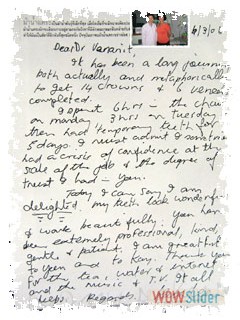 6/3/06
Dear Dr Vananit,
It has been a long journey
both actually and metaphorically
to get 14 crowns & 6 veneers
completed.
I spent 6 hrs in the chair
on monday 3 hrs on Tuesday
then had temporary teeth for
5 days. I must admit I
had a crisis of confidence at the
scale of the job & the degree of
trust I had in you.
Today I can say I am
delighted, my teeth look wonderful
& work beautifully. You have
been extremely professional, kind,
gentle & patient. I am greatful
to you and to Kay. Thank you
for the tea, water & internet
and the music & T.V. It all
helps. Regards
WOWSlider